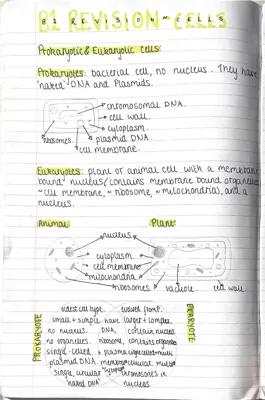 B1 REVISION ~ CELLS
Prokaryotic & Eukaryotic cells:
Prokaryotes: bacterial cell, no nucleus. They have
'naked' DNA and Plasmids.
chromosomal DNA.
cell wall.
cytoplasm.
ribosomes. plasmid DNA.
cell membrane.
Eukaryotes: plant or animal cell with a membrane
bound nucleus (contains membrane bound organelles
~ cell membrane, ~ ribosome, ~ mitochondria), and a
nucleus.
Animal Plant
nucleus
cytoplasm
cell membrane
mitochondria
ribosomes vacuole. cell wall.
PROKARYOTE
EUKARYOTE
oldest cell type evolved from P.
small + simple have larger + complex
no nucleus. DNA, contain nucleus
no organelles. ribosomes, contains organelles
single-celled + plasma
single, circular
'naked DNA' nucleus